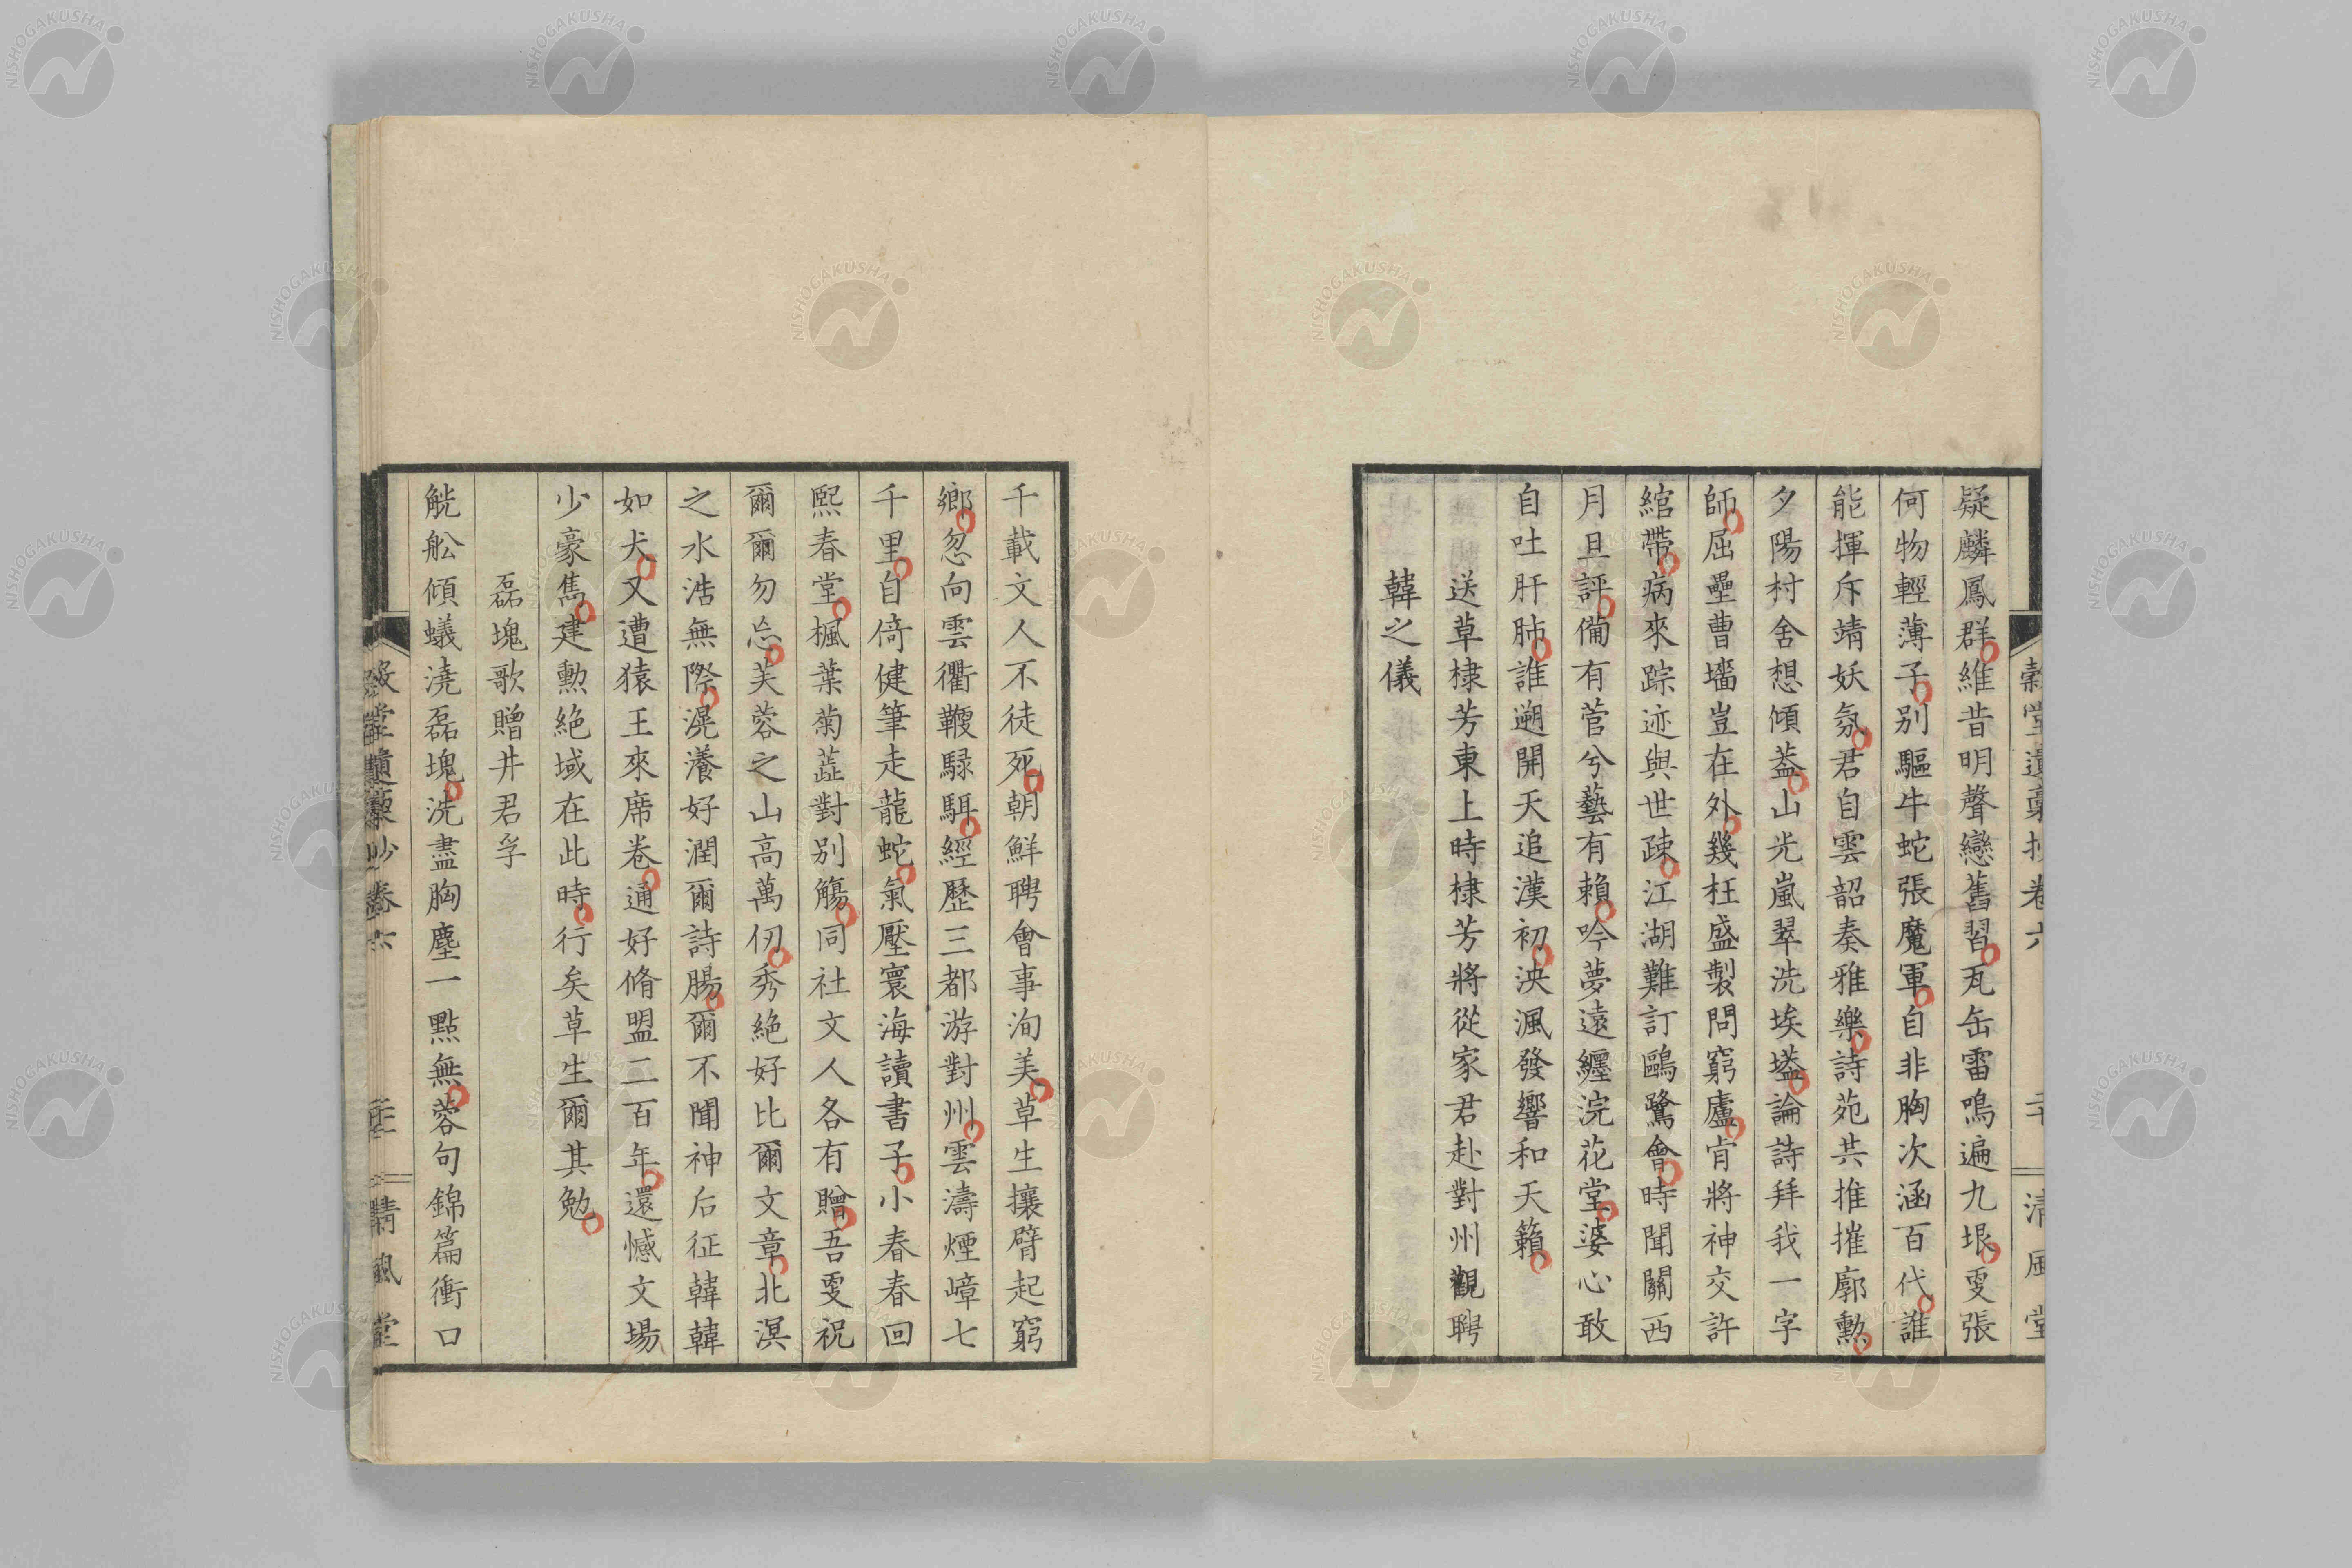 疑麟鳳群維昔明聲戀舊習瓦缶雷鳴遍九垠雯張
何物輕薄子別驅牛蛇張魔軍自非胸次涵百代誰
能揮斥靖妖氛君自雲韶奏雅樂詩苑共推摧廓勲
夕陽村舍想傾葢山光嵐翠洗埃壒論詩拜我一字
師屈壘曹墻豈在外幾枉盛製問窮廬肯將神交許
綰帶病來踪迹與世疎江湖難訂鷗鷺會時聞關西
月旦評備有菅兮藝有賴吟夢遠纒浣花堂婆心敢
自吐肝肺誰遡開天追漢初泱渢發響和天籟
送草棣芳東上時棣芳將從家君赴對州觀聘
韓之儀
千載文人不徒死朝鮮聘會事洵美草生攘臂起窮
鄉忽向雲衢鞭騄駬經歷三都游對州雲濤煙嶂七
千里自倚健筆走龍蛇氣壓寰海讀書子小春春回
熙春堂楓葉菊蘂對別觴同社文人各有贈吾雯祝
爾爾勿忘芙蓉之山高萬仞秀絶好比爾文章北溟
之水浩無際滉瀁好潤爾詩腸爾不聞神后征韓韓
如犬又遭猿王來席卷通好脩盟二百年還憾文場
少豪雋建勲絶域在此時行矣草生爾其勉
磊塊歌贈井君孚
觥舩傾蟻澆磊塊洗盡胸塵一點無蓉句錦篇衝口
堂遺稾抄卷六
清風堂
NISHOGAKUSHA